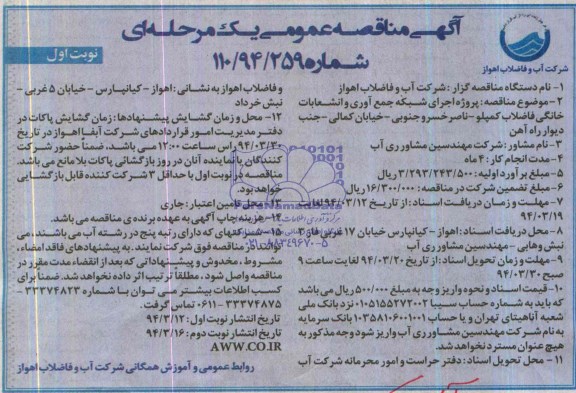 آگهی مناقصه عمومی یک مرحله‌ای
شماره ۱۱۰/۹۴/۲۵۹
نوبت اول
شرکت آب و فاضلاب اهواز
۱- نام دستگاه مناقصه گزار: شرکت آب و فاضلاب اهواز
۲- موضوع مناقصه: پروژه اجرای شبکه جمع آوری و انشعابات
خانگی فاضلاب کمپلو - ناصر خسرو جنوبی - خیابان کمالی - جنب
دیوار راه آهن
۳- نام مشاور: شرکت مهندسین مشاور ری آب
۴- مدت انجام کار: ۴ ماه
۵- مبلغ برآورد اولیه: ۳/۲۹۳/۲۴۳/۵۰۰ ریال
۶- مبلغ تضمین شرکت در مناقصه: ۱۶/۳۰۰/۰۰۰ ریال
۷- مهلت و زمان دریافت اسناد: از تاریخ ۹۴/۰۳/۱۲ لغایت
۹۴/۰۳/۱۹
۸- محل دریافت اسناد: اهواز - کیانپارس خیابان ۱۷ غربی فاز ۳
نبش وهابی - مهندسین مشاور ری آب
۹- مهلت و زمان تحویل اسناد: از تاریخ ۹۴/۰۳/۲۰ لغایت ساعت ۹
صبح ۹۴/۰۳/۳۰
۱۰- قیمت اسناد و نحوه واریز وجه به مبلغ ۵۰۰/۰۰۰ ریال می باشد
که باید به شماره حساب سیبا ۰۱۰۵۱۵۵۲۷۲۰۰۲ نزد بانک ملی
شعبه آناهیتای تهران و یا حساب ۱۰۳۵۸۱۰۶۰۰۱۰۰۱ بانک سرمایه
به نام شرکت مهندسین مشاور ری آب واریز شود وجه مذکور به
هیچ عنوان مسترد نخواهد شد.
۱۱- محل تحویل اسناد: دفتر حراست و امور محرمانه شرکت آب
و فاضلاب اهواز به نشانی: اهواز - کیانپارس - خیابان ۵ غربی -
نبش خرداد
۱۲- محل و زمان گشایش پیشنهادها: زمان گشایش پاکات در
دفتر مدیریت امور قراردادهای شرکت آبفا اهواز در تاریخ
۹۴/۰۳/۳۰ راس ساعت ۱۲:۰۰ می باشد، ضمنا حضور شرکت
کنندگان یا نماینده آنان در روز بازگشائی پاکات بلامانع می باشد.
مناقصه در نوبت اول با حداقل ۳ شرکت کننده قابل بازگشایی
خواهد بود.
۱۳- محل تامین اعتبار: جاری
۱۴- هزینه چاپ آگهی به عهده برنده ی مناقصه می باشد.
۱۵- شرکتهای که دارای رتبه پنج در رشته آب می باشند، می
توانند در مناقصه فوق شرکت نمایند. به پیشنهادهای فاقد امضاء،
مشروط، مخدوش و پیشنهاداتی که بعد از انقضاء مدت مقرر در
مناقصه واصل شود، مطلقاً ترتیب اثر داده نخواهد شد. ضمنا برای
کسب اطلاعات بیشتر می توان با شماره ۳۳۳۷۴۸۲۳ -
۳۳۳۷۴۸۷۵ - ۰۶۱۱ تماس گرفت.
تاریخ انتشار نوبت اول: ۹۴/۳/۱۲
تاریخ انتشار نوبت دوم: ۹۴/۳/۱۶
AWW.CO.IR
روابط عمومی و آموزش همگانی شرکت آب و فاضلاب اهواز